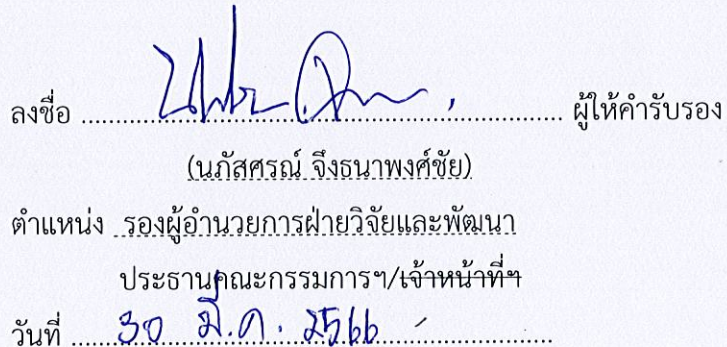 ลงชื่อ ........................ ผู้ให้คำรับรอง
(นภัสศรณ์ จึงธนาพงศ์ชัย)
ตำแหน่ง รองผู้อำนวยการฝ่ายวิจัยและพัฒนา
ประธานคณะกรรมการฯ/เจ้าหน้าที่ฯ
วันที่ 30 มี.ค. 2566